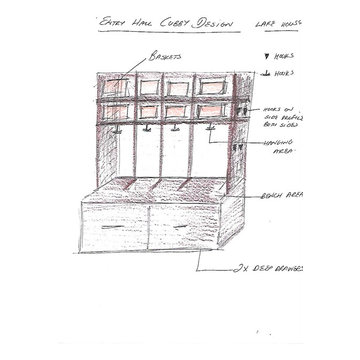 ENTRY HALL CUBBY DESIGN LAKE HOUSE
BASKETS
HOOKS
HOOKS
HOOKS ON
SIDE PROFILE
BOTH SIDES
HANGING
AREA
BENCH AREA
2X DEEP DRAWERS